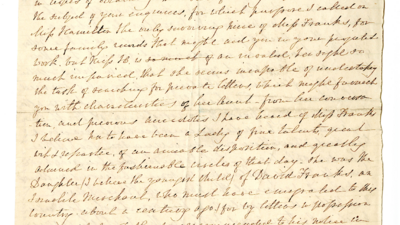 the subject of your enquiries, for which purpose I called on
Miss Hamilton the only surviving niece of Miss Franks, for
some family records that might aid you in your projected
work, but Miss H. is so much of an invalid, her sight so
much impaired, that she seems incapable of undertaking
the task of searching for papers or letters, which might furnish
you with characteristics of her Aunt. From her conversa-
tion, and previous anecdotes I have heard of Miss Franks
I believe her to have been a Lady of fine talent, great
wit & repartee, of an amiable disposition, and greatly
admired in the fashionable circles of that day. She was the
Daughter (I believe the youngest child) of David Franks, an
Israelite Merchant, who must have emigrated to this
country about a century ago, for by letters in possession